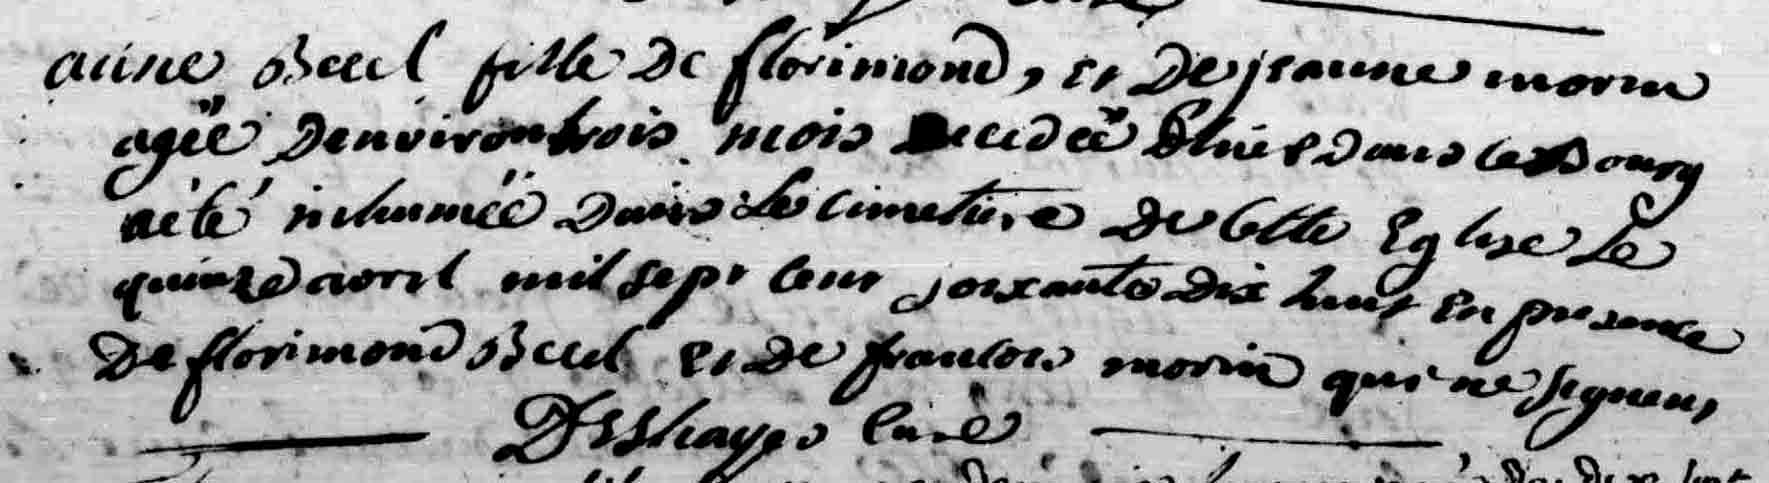 anne Beed fille De florimond, et De jeanne morin
agée Denviron trois mois Decedée hier dans le Bourg
aété inhumée Dans Le cimetiere De Cette Eglise Le
quinze avril mil sept cent soixante Dix huit En presence
De florimond Beed et De francois morin qui ne signent,
Deshayes Curé